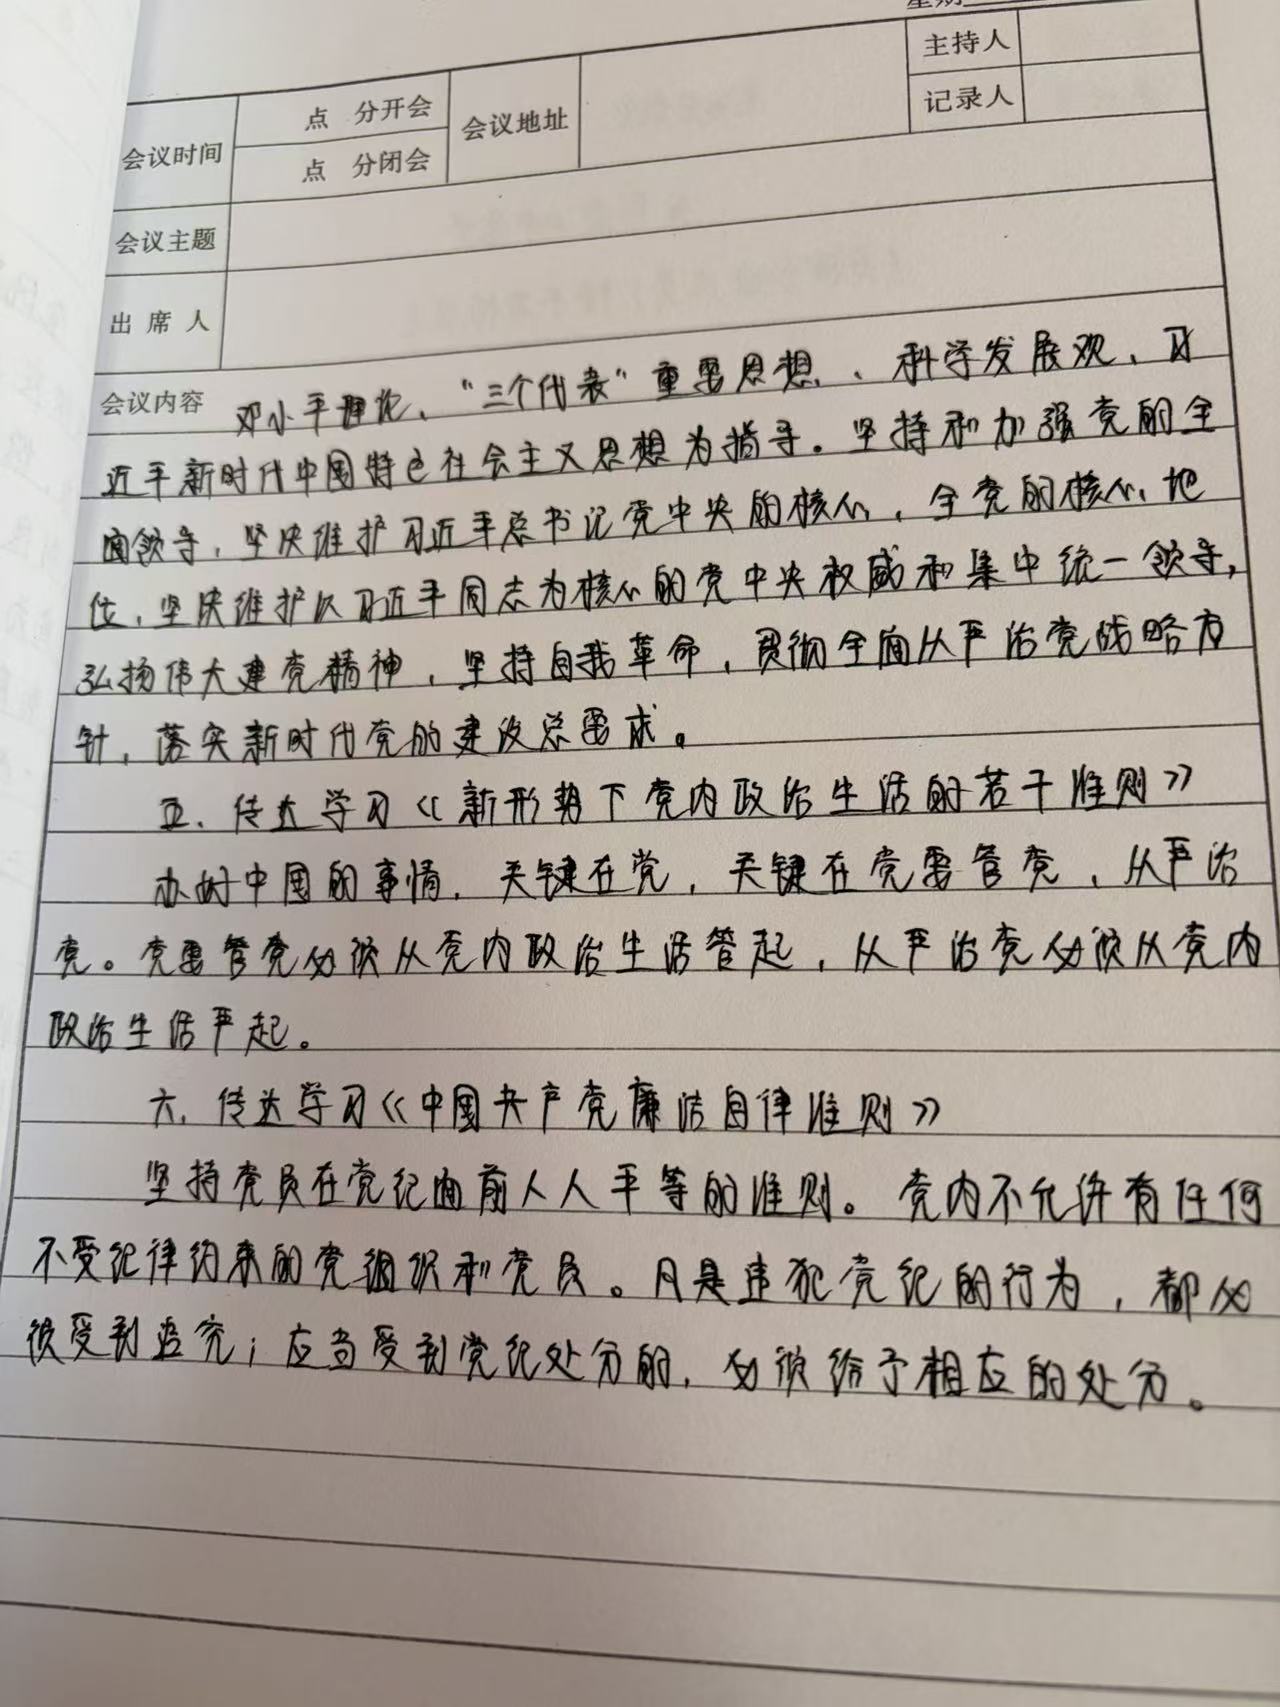 星期
会议时间 点 分开会 会议地址 主持人
点 分闭会 记录人
会议主题
出席人
会议内容 邓小平理论、“三个代表”重要思想、科学发展观、习
近平新时代中国特色社会主义思想为指导。坚持和加强党的全
面领导,坚决维护习近平总书记党中央的核心,全党的核心地
位,坚决维护以习近平同志为核心的党中央权威和集中统一领导,
弘扬伟大建党精神,坚持自我革命,贯彻全面从严治党战略方
针,落实新时代党的建设总要求。
五、传达学习《新形势下党内政治生活的若干准则》
办好中国的事情,关键在党,关键在党要管党、从严治
党。党要管党必须从党内政治生活管起,从严治党必须从党内
政治生活严起。
六、传达学习《中国共产党廉洁自律准则》
坚持党员在党纪面前人人平等的准则。党内不允许有任何
不受纪律约束的党组织和党员。凡是违犯党纪的行为,都必
须受到追究;应当受到党纪处分的,必须给予相应的处分。